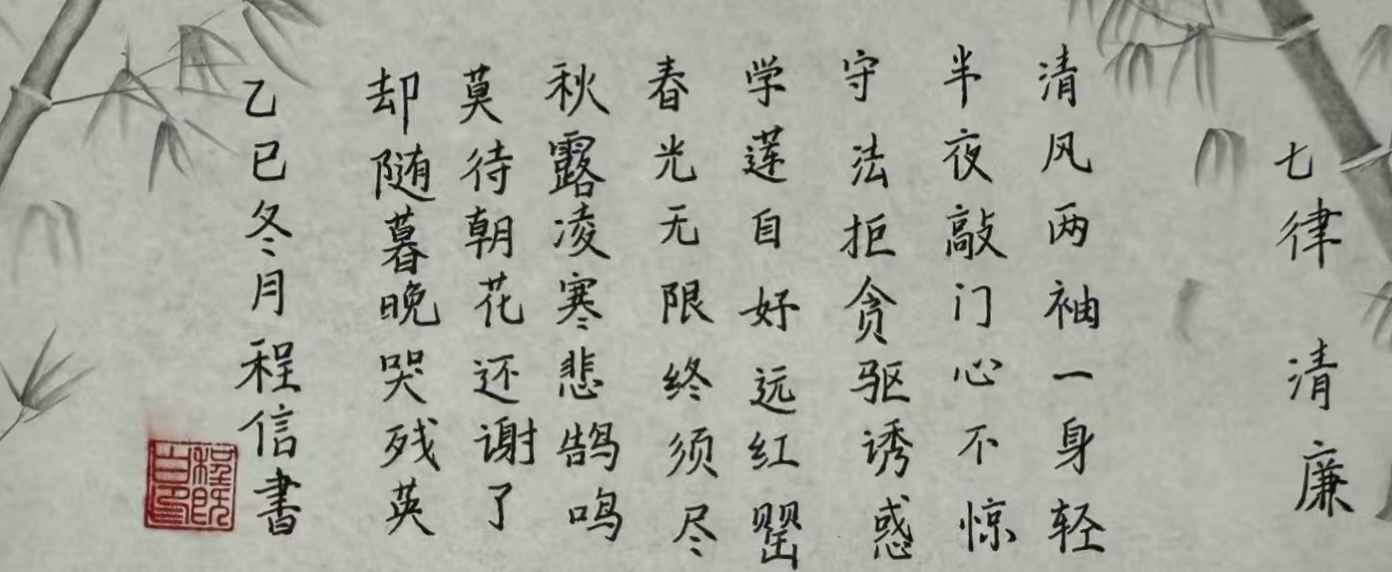 七律 清廉
清风两袖一身轻
半夜敲门心不惊
守法拒贪驱诱惑
学莲自好远红罂
春光无限终须尽
秋露凌寒悲鹄鸣
莫待朝花还谢了
却随暮晚哭残英
乙巳冬月程信書